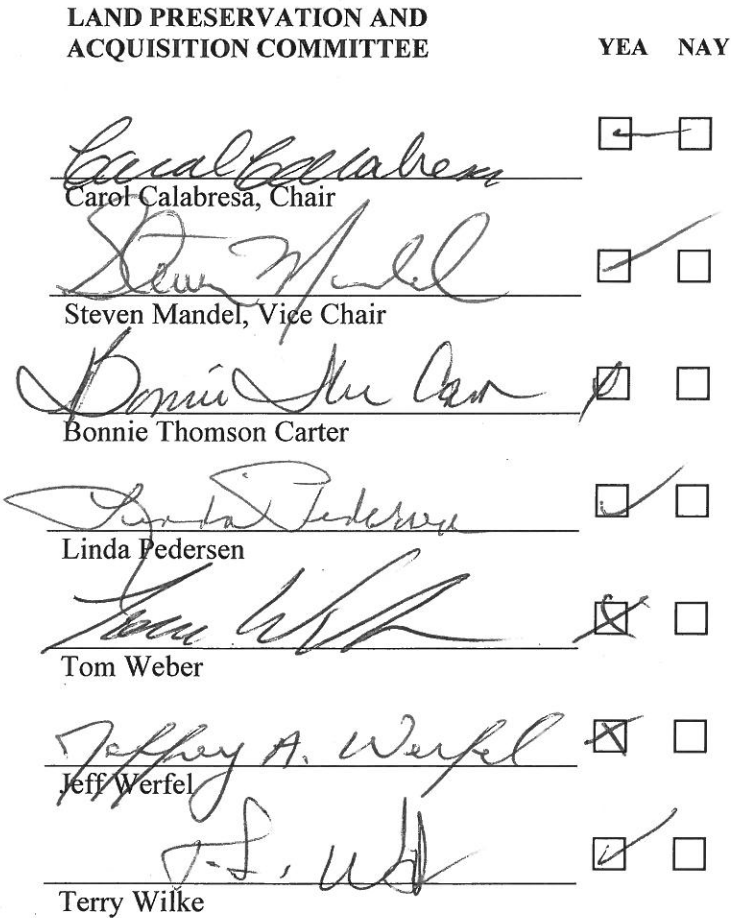 LAND PRESERVATION AND
ACQUISITION COMMITTEE YEA NAY
Carol Calabresa
Carol Calabresa, Chair
Steven Mandel
Steven Mandel, Vice Chair
Bonnie
Bonnie Thomson Carter
Linda Pedersen
Linda Pedersen
Tom
Tom Weber
Jeffrey A. Werfel
Jeff Werfel
Terry Wilke